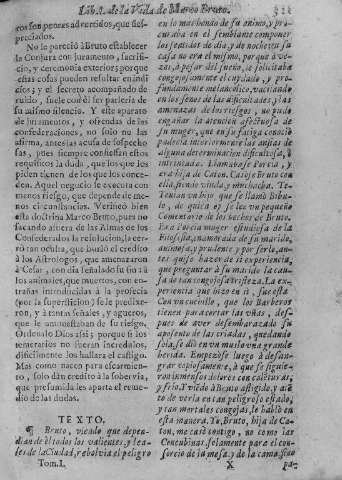 Lib. I. de la Vida de Marco Bruto. 321
son los peores advertidos, que des-
preciados.
No le pareciò à Bruto establecer
la Conjura con juramento, sacrifi-
cio, y ceremonia exteriores; porque
estas cosas pueden resultar en indi-
cios; y el secreto acompañado de
ruido, suele con èl ser parleria de
su mismo silencio. Y este aparato
de juramentos, y ofrendas de las
confederaciones, no solo no las
afirma, antes las acusa de sospecho-
sas, pues siempre confiessan estos
requisitos la duda, que los que los
piden tienen de los que los conce-
den. Aquel negocio se executa con
menos riesgo, que depende de me-
nos circunstancias. Verificò bien
esta doctrina Marco Bruto, pues no
sacando afuera de las Almas de los
Confederados la resolucion, la cer-
rò tan oculta, que burlò el credito
à los Astrologos, que amenazaron
à Cesar, con dia señalado su fin: à
los animales, que muertos, con en-
trañas introducidas à la profecia
(por la supersticion) se le predixe-
ron, y à tantas señales, y agueros,
que le amonestaban de su riesgo.
Ordenalo Dios assi; porque si los
temerarios no fueran incredulos,
dificilmente los hallara el castigo.
Mas como nacen para escarmien-
to, solo dàn credito à la sobervia,
que presumida les aparta el reme-
dio de las dudas.
TEXTO.
¶ Bruto, viendo que depen-
dian de èl todos los valientes, y lea-
les de la Ciudad, rebolvia el peligro
Tom. I.
en lo mas hondo de su animo, y pro-
curaba en el semblante componer
los sentidos de dia, y de noche en su
casa no era el mismo, porque à ve-
ces, à pesar del sueño, le solicitaba
congojosamente el cuydado, y pro-
fundamente melancolico, vacilando
en los senos de las dificultades, y las
amenazas de los riesgos, no pudo
engañar la atencion afectuosa de
su muger, que en su fatiga conociò
padecia interiormente las ansias de
alguna determinacion dificultosa, è
intrincada. Llamavase Porcia, y
era hija de Caton. Casòse Bruto con
ella, siendo viuda, y muchacha. Te-
niendo un hijo que se llamò Bibu-
lo, de quien oy se lee un pequeño
Comentario de los hechos de Bruto.
Era Porcia muger estudiosa de la
Filosofia, enamorada de su marido,
animosa, y prudente; y por ser la, an-
tes quiso hazer de sì experiencia,
que preguntar à su marido la cau-
sa de tan congojosa tristeza. La ex-
periencia que hizo en sì, fue esta
Con un cuchillo, que los Barberos
tienen para cortar las uñas, des-
pues de aver desembarazado su
aposento de las criadas, quedando
sola, se diò en un muslo una grande
herida. Empezòse luego à desan-
grar copiosamente, à que se siguie-
ron inmensos dolores con calenturas,
y frio. Y viendo à Bruto afligido, y ato-
nito de verla en tan peligroso estado,
y tan mortales congojas, le hablò en
esta manera. Yo, Bruto, hija de Ca-
ton, me casè contigo, no como las
Concubinas, solamente para el con-
sorcio de la mesa, y de la cama, sino
X
pa-